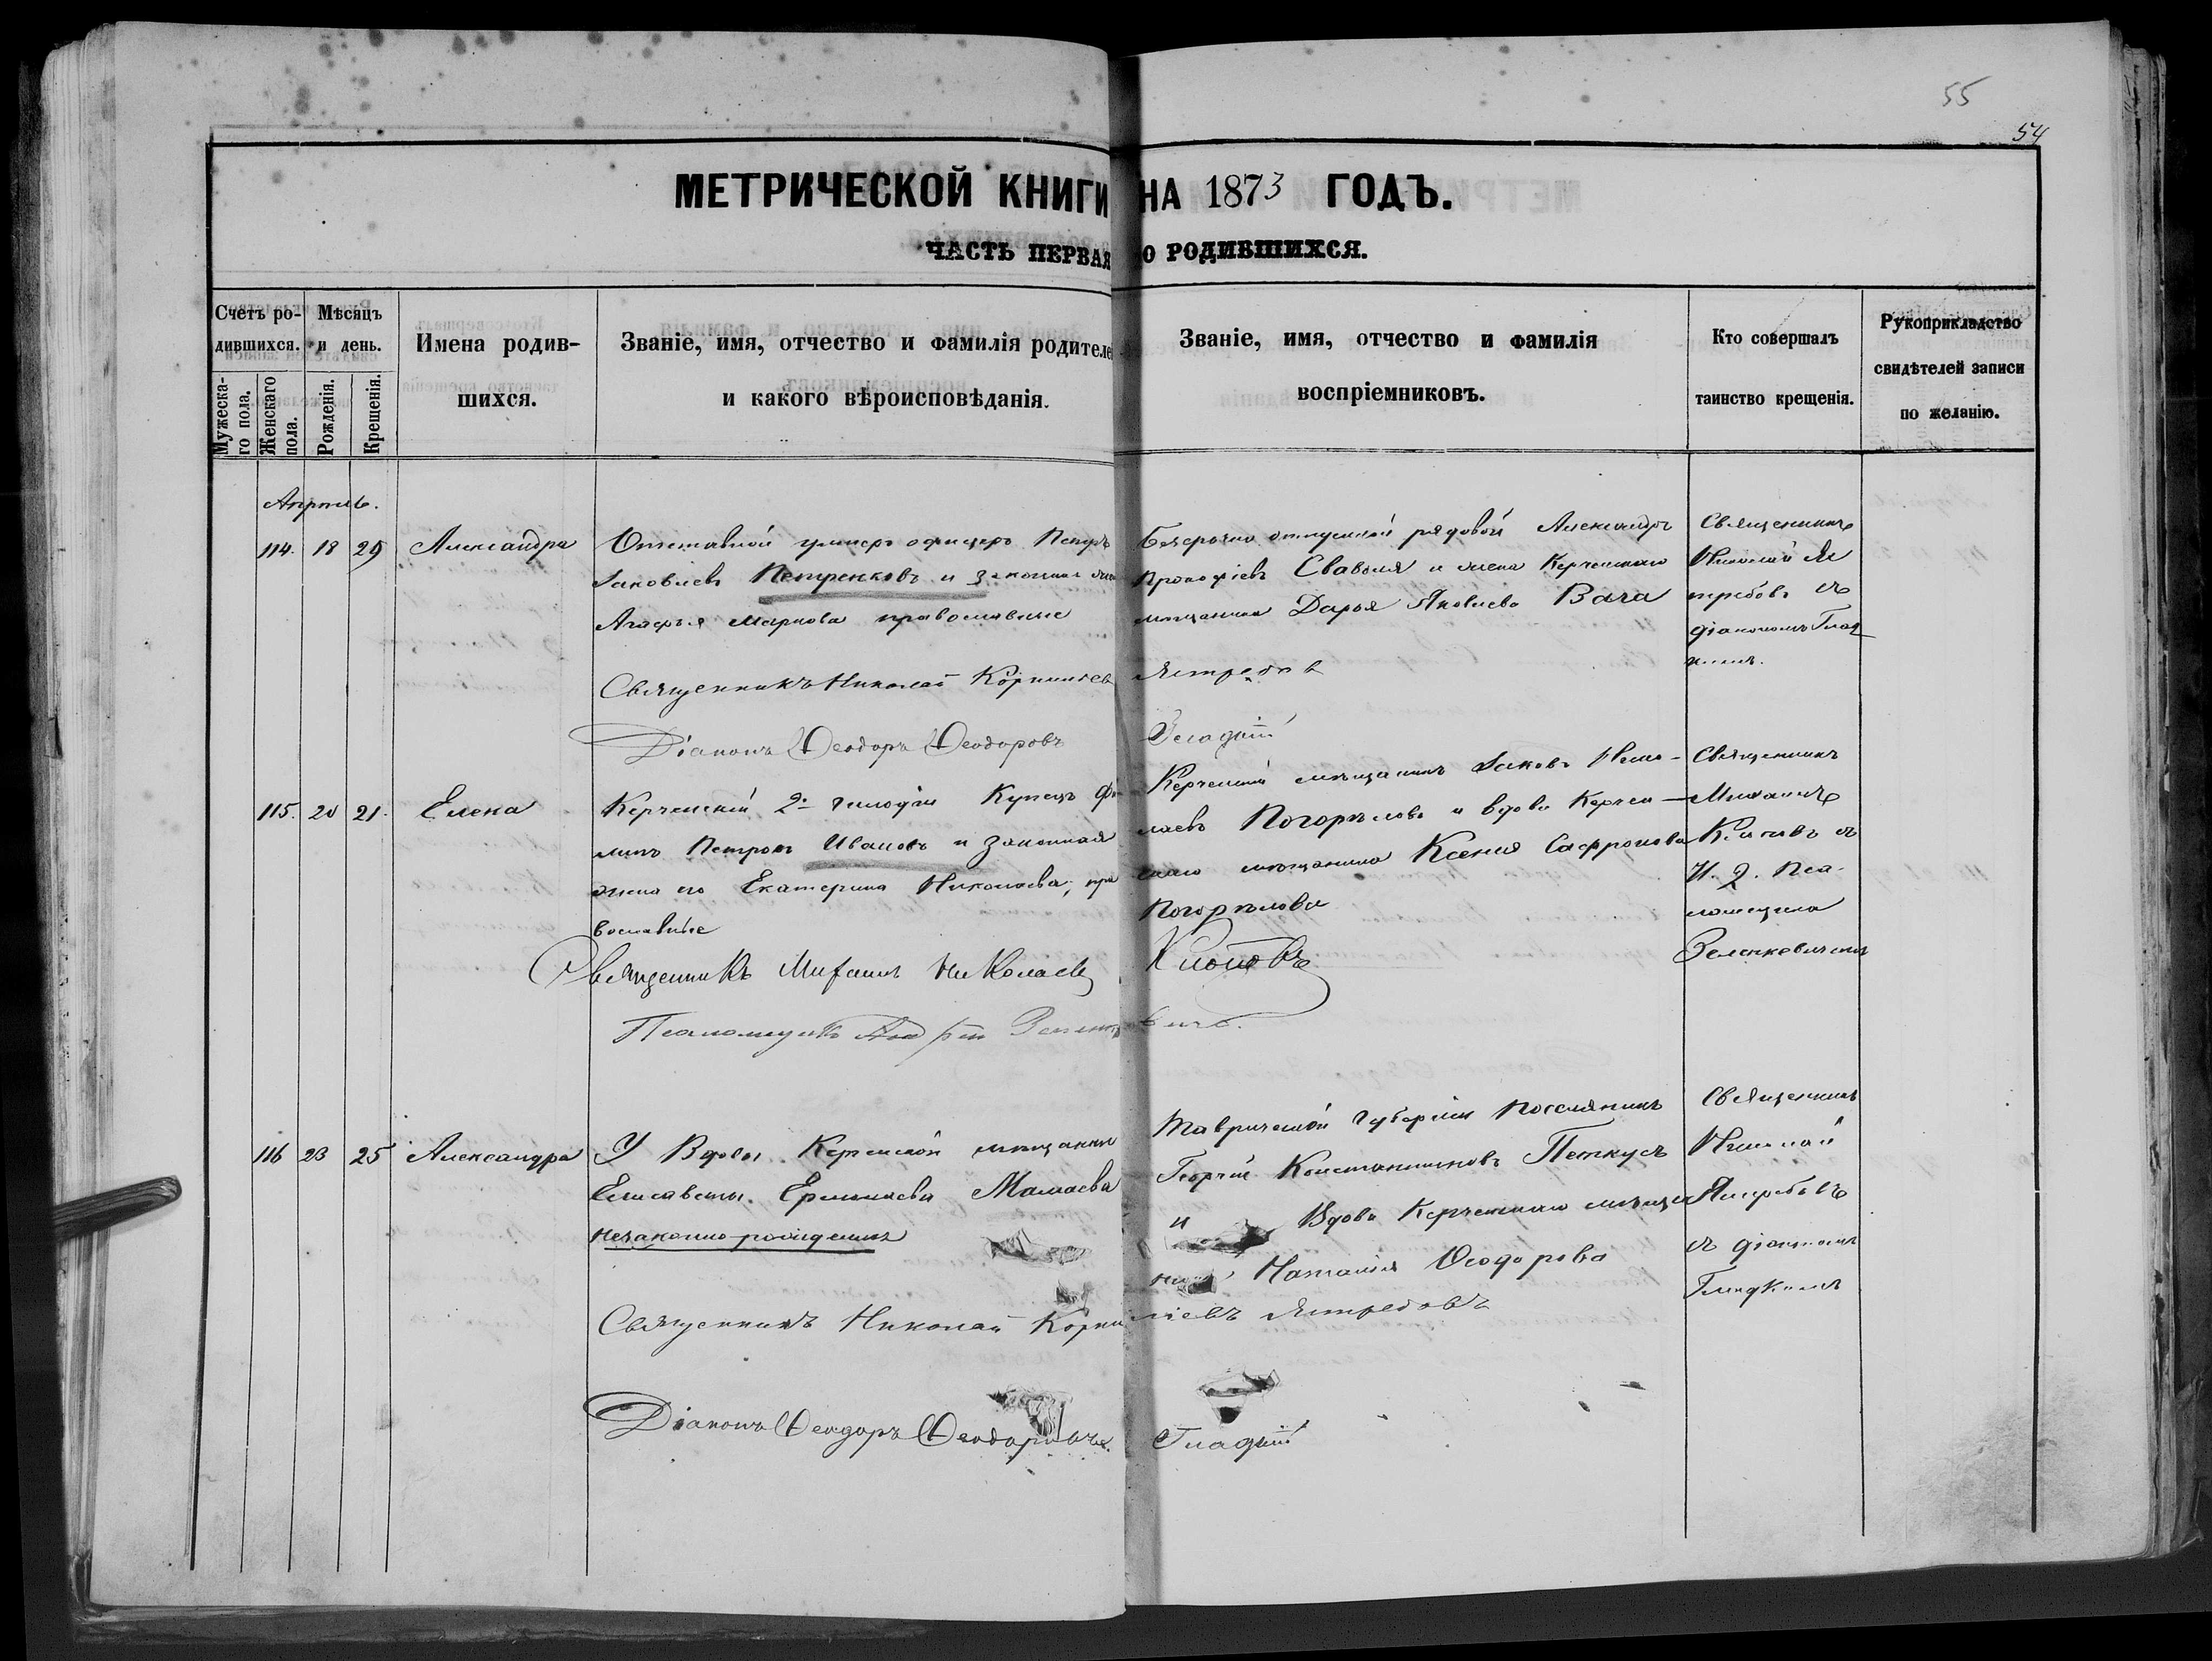 55
54
МЕТРИЧЕСКОЙ КНИГИ НА 1873 ГОДЪ.
ЧАСТЬ ПЕРВАЯ О РОДИВШИХСЯ.
Счетъ ро-
дившихся.
Мужеска-
го пола.
Женскаго
пола.
Мѣсяцъ
и день.
Рожденія.
Крещенія.
Имена родив-
шихся.
Званіе, имя, отчество и фамилія родителе
и какого вѣроисповѣданія.
Званіе, имя, отчество и фамилія
воспріемниковъ.
Кто совершалъ
таинство крещенія.
Рукоприкладство
свидѣтелей записи
по желанію.
Апрель.
114. 18 29 Александра
Отставной унтеръ офицеръ Петръ
Яковлевъ Петренковъ и законная
Агафья Маркова православные
Безсрочно отпускной рядовой Александръ
Прокофіевъ Сваволя и жена Керченскаго
мѣщанина Дарья Яковлева Вача
Священникъ
Николай Яс
требовъ съ
діакономъ Глад
кимъ.
Священникъ Николай Корниліев Ястребов
Діаконъ Ѳеодоръ Ѳеодоровъ Гладкій
115. 20 21. Елена
Керченскій 2й гильдіи Купецъ Фи
липъ Петровъ Ивановъ и законная
жена его Екатерина Николаева, пра
вославные
Керченскій мѣщанинъ Яковъ Нико-
лаевъ Погорѣловъ и вдова Керчен-
скаго мѣщанина Ксенія Сафронова
Погорѣлова
Священникъ
Михаилъ
Клоповъ съ
И. д. Пса-
ломщика
Зеленкевичемъ
Священникъ Михаилъ Николаев Клоповъ
Псаломщикъ Андрей Зеленкевичъ.
116 23 25 Александра
У Вдовы Керченской мѣщанки
Елисаветы Ермолаевы Мамаева
незаконно-рожденна
Таврической губерніи поселянинъ
Георгій Константиновъ Петкусъ
и Вдова Керченскаго мѣщан
Наталія Ѳеодорова
Священникъ
Николай
Ястребовъ
съ діакономъ
Гладкимъ
Священникъ Николай Корниліевъ Ястребовъ
Діаконъ Ѳеодоръ Ѳеодоровъ Гладкій